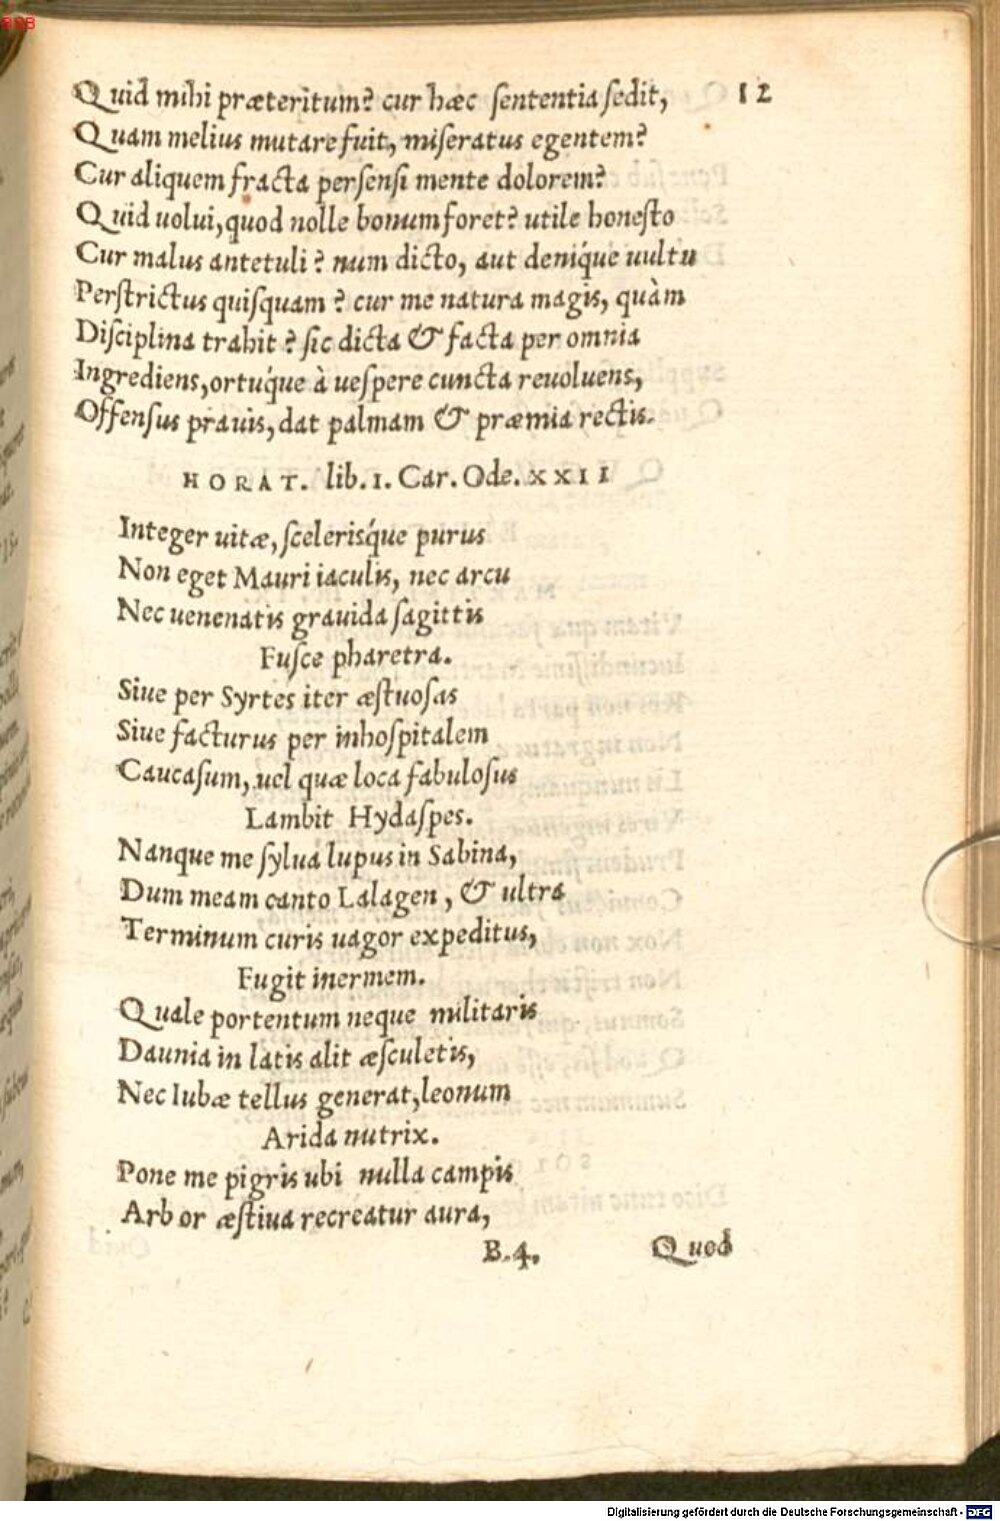 Quid mihi præteritum? cur hæc sententia sedit, 12
Quam melius mutare fuit, miseratus egentem?
Cur aliquem fracta persensi mente dolorem?
Quid uolui, quod nolle bonum foret? utile honesto
Cur malus antetuli? num dicto, aut deniq́ue uultu
Perstrictus quisquam? cur me natura magis, quàm
Disciplina trahit? sic dicta & facta per omnia
Ingrediens, ortuq́ue à uespere cuncta reuoluens,
Offensus prauis, dat palmam & præmia rectis.
HORAT. lib. 1. Car. Ode. XXII
Integer uitæ, scelerisq́ue purus
Non eget Mauri iaculis, nec arcu
Nec uenenatis grauida sagittis
Fusce pharetra.
Siue per Syrtes iter æstuosas
Siue facturus per inhospitalem
Caucasum, uel quæ loca fabulosus
Lambit Hydaspes.
Nanque me sylua lupus in Sabina,
Dum meam canto Lalagen, & ultra
Terminum curis uagor expeditus,
Fugit inermem.
Quale portentum neque militaris
Daunia in latis alit æsculetis,
Nec Iubæ tellus generat, leonum
Arida nutrix.
Pone me pigris ubi nulla campis
Arbor æstiua recreatur aura,
B.4. Quod
Digitalisierung gefördert durch die Deutsche Forschungsgemeinschaft - DFG